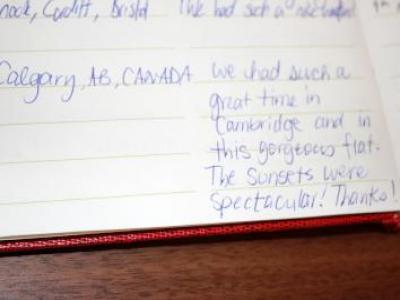 Cardiff, Bristol We had such a
Calgary, AB, CANADA We had such a
great time in
Cambridge and in
this gorgeous flat.
The Sunsets were
Spectacular! Thanks!